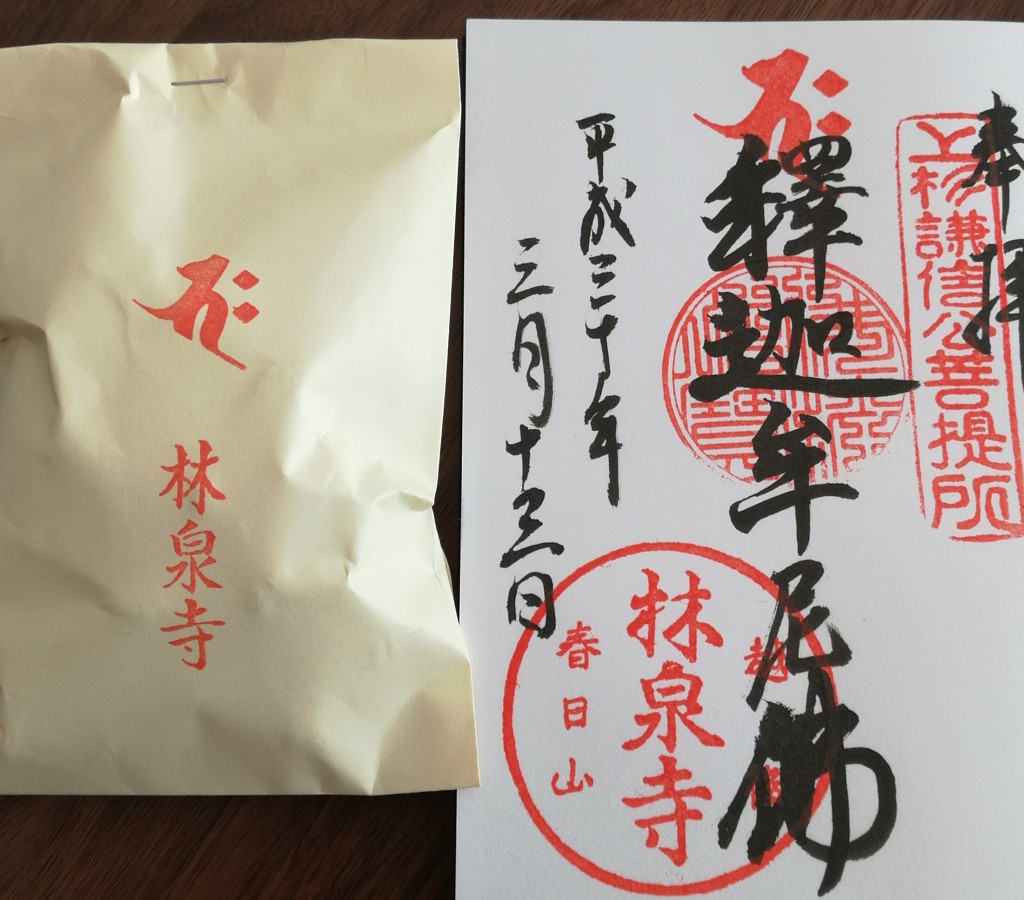 林泉寺
奉拝
上杉謙信公菩提所
釋迦牟尼佛
平成三十年
三月十三日
林泉寺
春日山